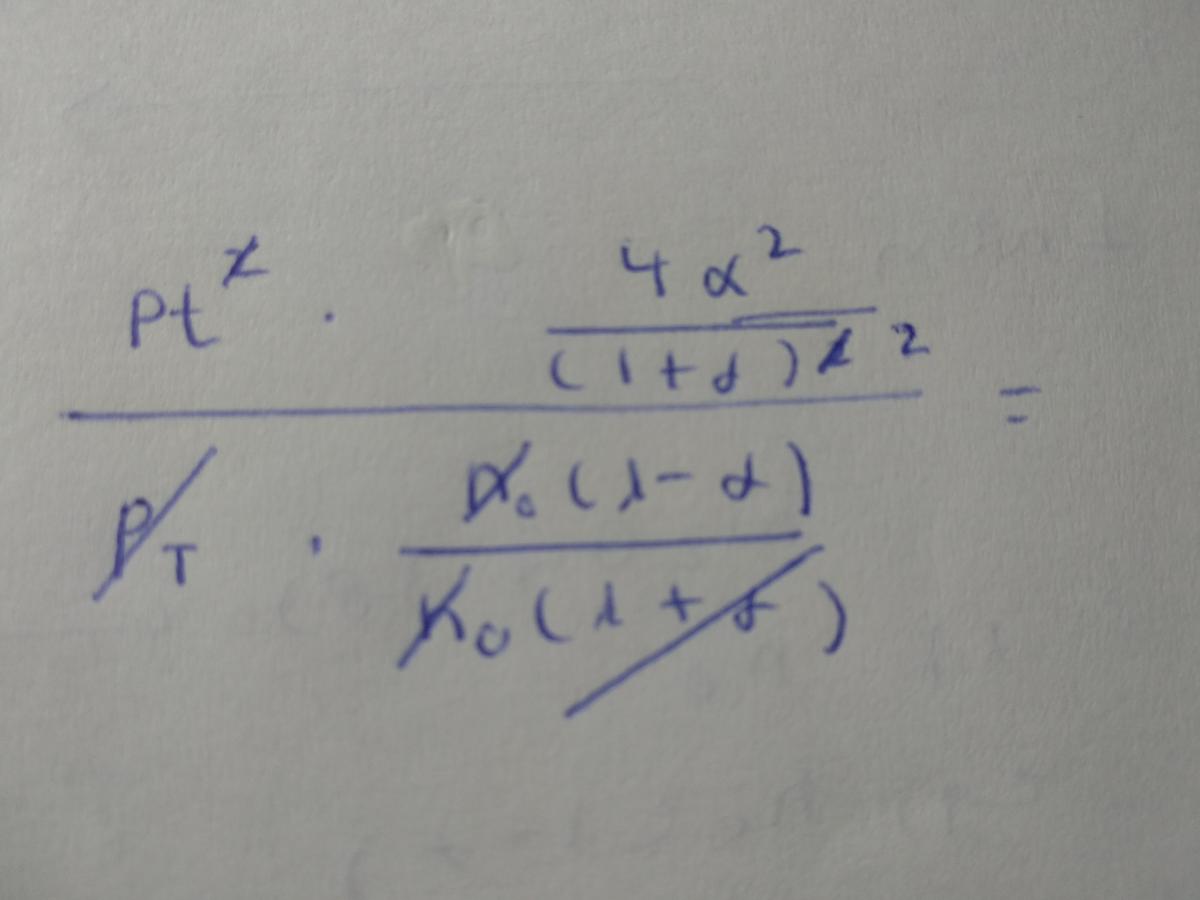 Pt² · 4α²
(1+α)2 2 =
P_T · n₀(1-α)
n₀(1+α)